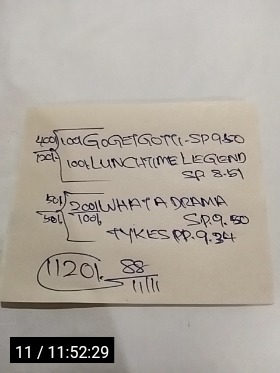 400/ 100/ GOGETGOTTI - SP 9.50
100/ 100/ LUNCHTIME LEGEND
SP 8.51
50/ 200/ WHAT A DRAMA
50/ 100/ SP. 9.50
TYKES PP. 9.34
1120/. 88
11111
11 / 11:52:29